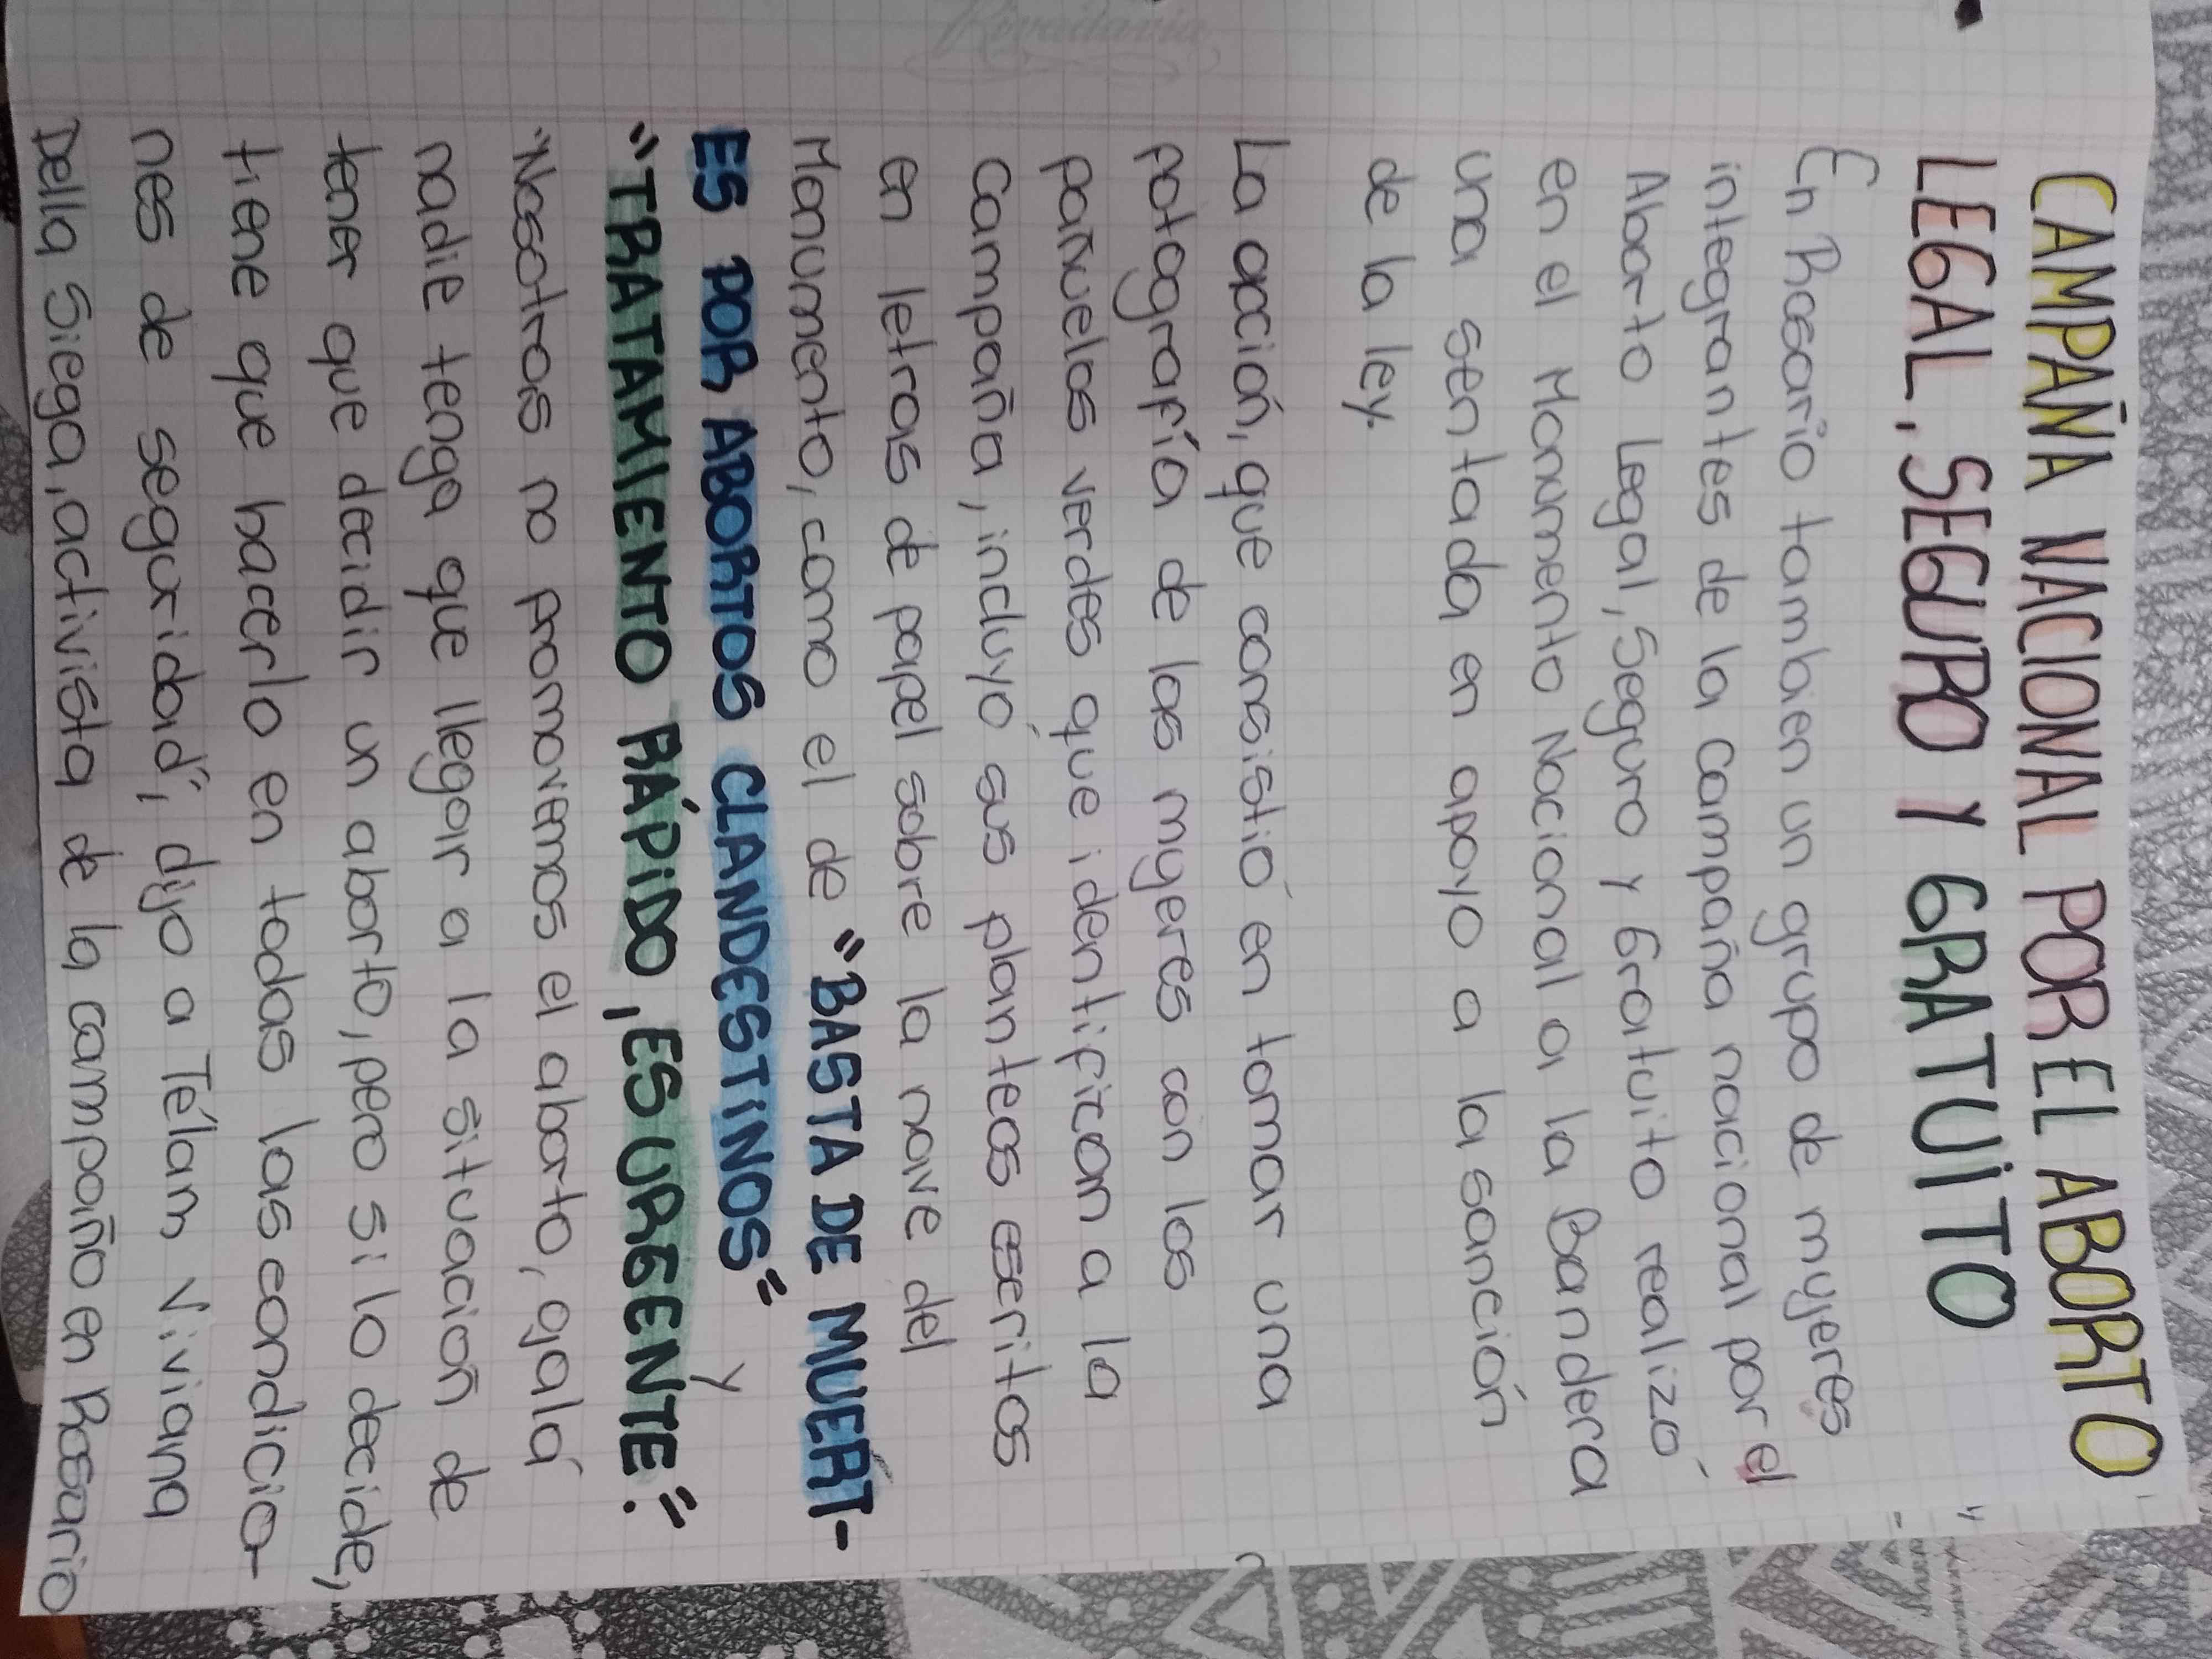 Rivadavia
CAMPAÑA NACIONAL POR EL ABORTO
LEGAL, SEGURO Y GRATUITO
En Rosario tambien un grupo de mujeres
integrantes de la campaña nacional por el
Aborto Legal, Seguro y Gratuito realizó
en el Monumento Nacional a la Bandera
una sentada en apoyo a la sanción
de la ley.
La acción, que consistió en tomar una
fotografía de las mujeres con los
pañuelos verdes que identifican a la
campaña, incluyó sus planteos escritos
en letras de papel sobre la nave del
Monumento, como el de "BASTA DE MUERT-
ES POR ABORTOS CLANDESTINOS" y
"TRATAMIENTO RÁPIDO, ES URGENTE".
"Nosotras no promovemos el aborto, ojalá
nadie tenga que llegar a la situación de
tener que decidir un aborto, pero si lo decide,
tiene que hacerlo en todas las condicio-
nes de seguridad", dijo a Télam Viviana
Della Siega, activista de la campaña en Rosario